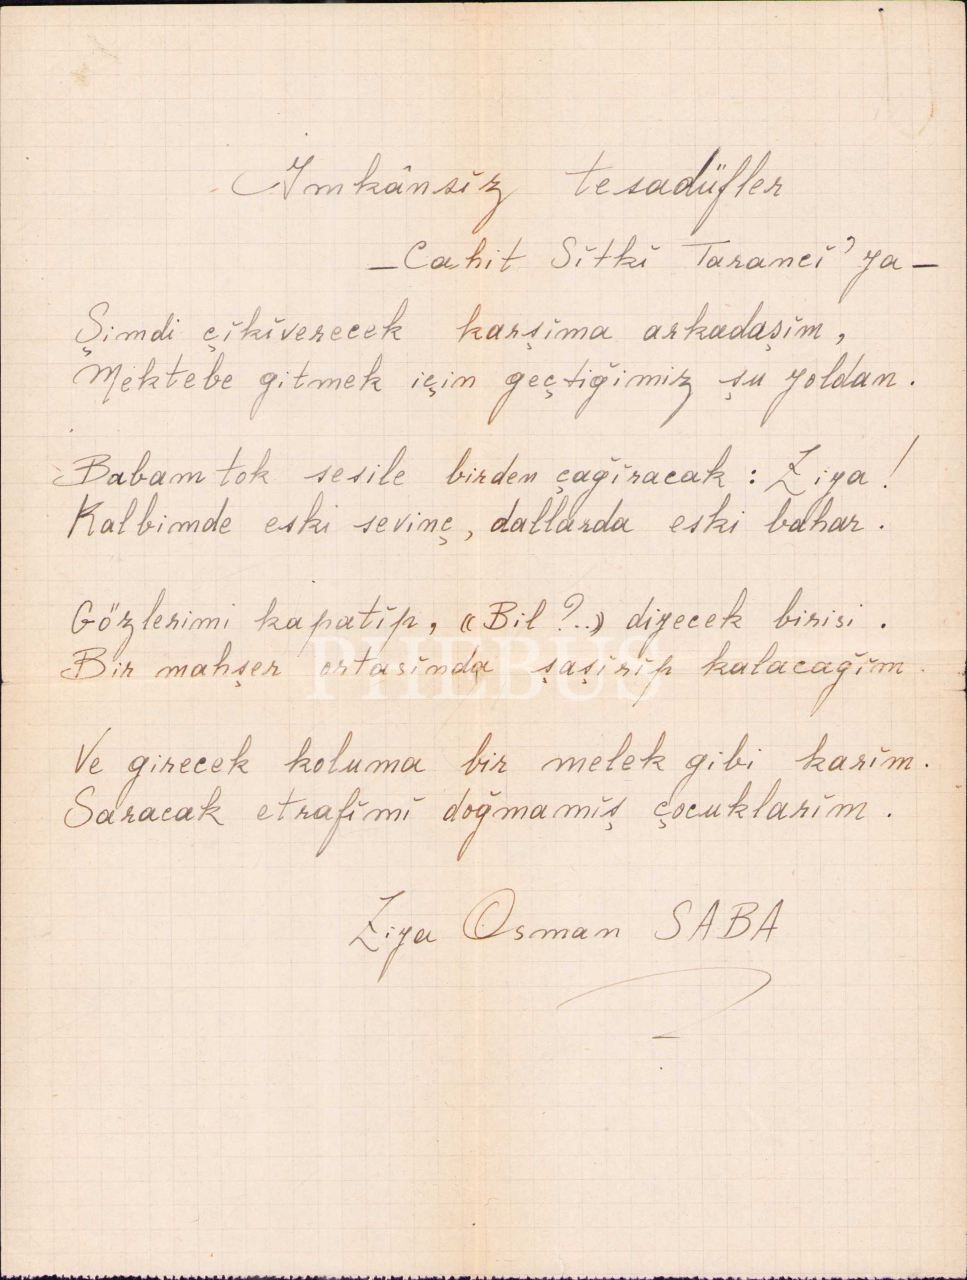 İmkânsız tesadüfler
— Cahit Sıtkı Tarancı'ya —
Şimdi çıkıverecek karşıma arkadaşım,
Mektebe gitmek için geçtiğimiz şu yoldan.
Babam tok sesile birden çağıracak : Ziya !
Kalbimde eski sevinç, dallarda eski bahar.
Gözlerimi kapatıp, «Bil ?..» diyecek birisi.
Bir mahşer ortasında şaşırıp kalacağım.
PHEBUS
Ve girecek koluma bir melek gibi karım.
Saracak etrafımı doğmamış çocuklarım.
Ziya Osman SABA